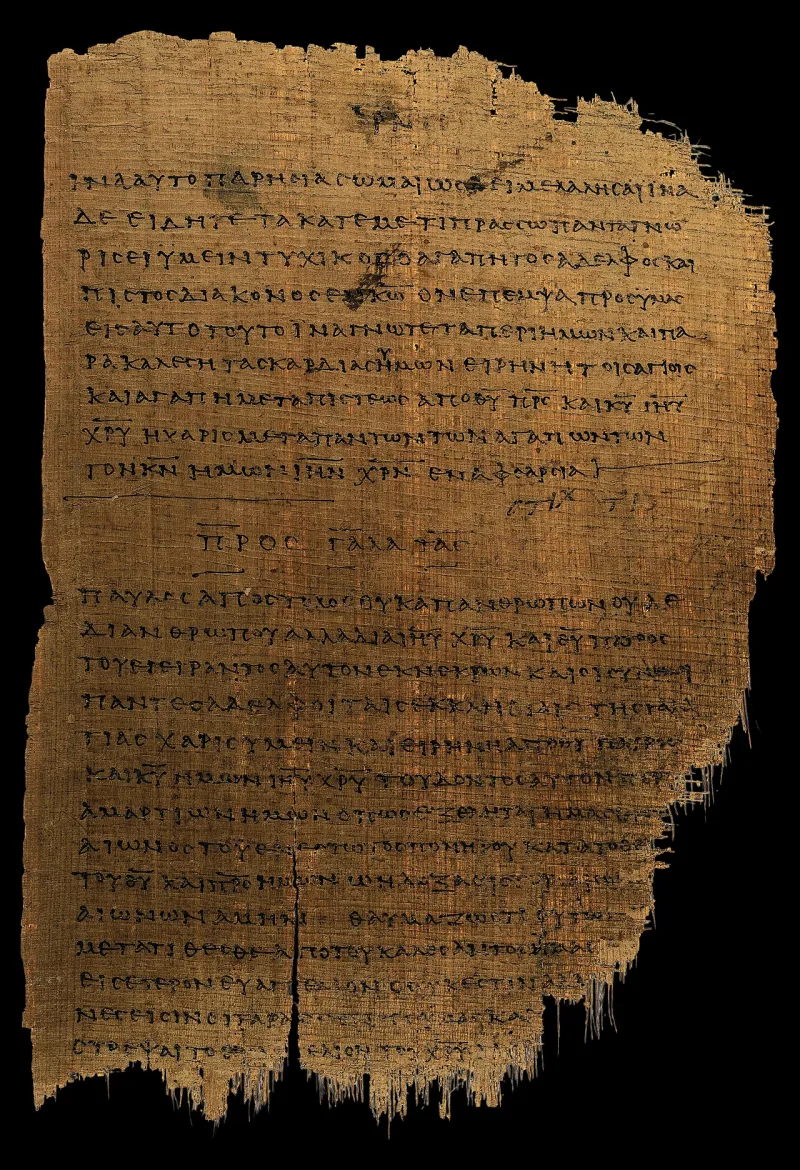 ΙΝΑΑΥΤΟΠΑΡΗϹΙΑϹΩΜΑΙΩϹΔΕΙΜΕΛΑΛΗϹΑΙΙΝΑ
ΔΕΕΙΔΗΤΕΤΑΚΑΤΕΜΕΤΙΠΡΑϹϹΩΠΑΝΤΑΓΝΩ
ΡΙϹΕΙΥΜΕΙΝΤΥΧΙΚΟϹΟΑΓΑΠΗΤΟϹΑΔΕΛΦΟϹΚΑΙ
ΠΙϹΤΟϹΔΙΑΚΟΝΟϹΕΝΚ̅Ω̅ΟΝΕΠΕΜΨΑΠΡΟϹΥΜΑϹ
ΕΙϹΑΥΤΟΤΟΥΤΟΙΝΑΓΝΩΤΕΤΑΠΕΡΙΗΜΩΝΚΑΙΠΑ
ΡΑΚΑΛΕϹΗΤΑϹΚΑΡΔΙΑϹΗΜΩΝΕΙΡΗΝΗΤΟΙϹΑΓΙΟΙϹ
ΚΑΙΑΓΑΠΗΜΕΤΑΠΙϹΤΕΩϹΑΠΟΘ̅Υ̅Π̅Ρ̅Ϲ̅ΚΑΙΚ̅Υ̅Ι̅Η̅Υ̅
Χ̅Ρ̅Υ̅ΗΧΑΡΙϹΜΕΤΑΠΑΝΤΩΝΤΩΝΑΓΑΠΩΝΤΩΝ
ΤΟΝΚ̅Ν̅ΗΜΩΝΙ̅Η̅Ν̅Χ̅Ρ̅Ν̅ΕΝΑΦΘΑΡϹΙΑ
ΠΡΟϹ ΓΑΛΑΤΑϹ
ΠΑΥΛΟϹΑΠΟϹΤΟΛΟϹΟΥΚΑΠΑΝΘΡΩΠΩΝΟΥΔΕ
ΔΙΑΝΘΡΩΠΟΥΑΛΛΑΔΙΑΙ̅Η̅Υ̅Χ̅Ρ̅Υ̅ΚΑΙΘ̅Υ̅ΠΑΤΡΟϹ
ΤΟΥΕΓΕΙΡΑΝΤΟϹΑΥΤΟΝΕΚΝΕΚΡΩΝΚΑΙΟΙϹΥΝΕΜΟΙ
ΠΑΝΤΕϹΑΔΕΛΦΟΙΤΑΙϹΕΚΚΛΗϹΙΑΙϹΤΗϹΓΑΛΑ
ΤΙΑϹΧΑΡΙϹΥΜΕΙΝΚΑΙΕΙΡΗΝΗΑΠΟΘ̅Υ̅ΠΑΤΡΟϹ
ΚΑΙΚ̅Υ̅ΗΜΩΝΙ̅Η̅Υ̅Χ̅Ρ̅Υ̅ΤΟΥΔΟΝΤΟϹΑΥΤΟΝΠΕΡΙ
ΑΜΑΡΤΙΩΝΗΜΩΝΟΠΩϹΕΞΕΛΗΤΑΙΗΜΑϹ
ΑΙΩΝΟϹΤΟΥΕΝΕϹΤΩΤΟϹΠΟΝΗΡΟΥΚΑΤΑΤΟΘΕ
ΤΟΥΘ̅Υ̅ΚΑΙΠ̅Ρ̅Ο̅ϹΗΜΩΝΩΗΔΟΞΑΕΙϹ
ΑΙΩΝΩΝΑΜΗΝ ΘΑΥΜΑΖΩΟΤΙΟΥΤΩϹ
ΜΕΤΑΤΙΘΕϹΘΕΑΠΟΤΟΥΚΑΛΕϹΑΝΤΟϹΥΜΑϹ
ΕΙϹΕΤΕΡΟΝΕΥΑΓΓΕΛΙΟΝΟΟΥΚΕϹΤΙΝΑΛΛ
ΝΕϹΕΙϹΙΝΟΙΤΑΡΑϹϹΟΝΤΕϹΥΜΑϹΚΑΙ
ϹΤΡΕΨΑΙΤΟΕΥΑΓΓΕΛΙΟΝΤΟΥΧ̅Ρ̅Υ̅